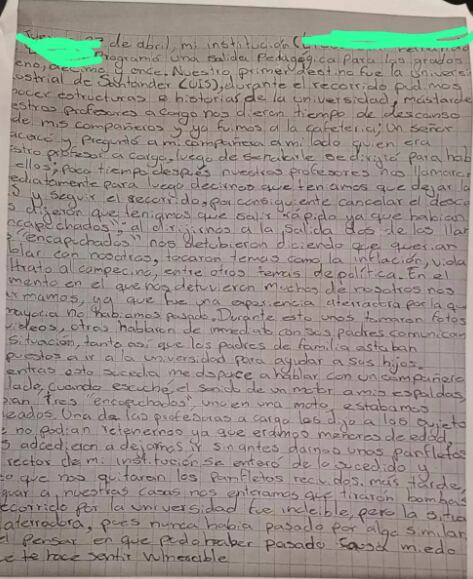 de abril, mi institución
programó una salida Pedagógica para los grados
eno, decimo y once. Nuestro primer destino fue la univers
ustrial de Santander (UIS), durante el recorrido pudimos
nocer estructuras e historias de la universidad, mas tarde
estros profesores a cargo nos dieron tiempo de descanso
de mis compañeros y yo fuimos a la cafeteria; Un señor
acercó y Preguntó a mi compañera a mi lado quien era
stro profesor a cargo, luego de se dirigió para hab
ellos; poco tiempo después nuestros profesores nos llamaron
ediatamente para luego decirnos que teniamos que dejar la
y seguir el recorrido, por consiguiente cancelar el desca
s dijeron que teniamos que salir rápido ya que habian
ncapuchados"; al dirijirnos a la salida dos de los llam
"encapuchados" nos detubieron diciendo que querian
blar con nosotros, tocaron temas como la inflación, viola
ltrato al campecino, entre otros temas de política. En el
mento en el que nos detuvieron muchos de nosotros nos
armamos, ya que fue una experiencia aterradora por la que
mayoria no habiamos pasado. Durante esto unos tomaron fotos
videos, otros hablaron de inmediato con sus padres comunican
situación, tanto asi que los padres de familia estaban
puestos a ir a la universidad para ayudar a sus hijos.
entras esto sucedia me dspuce a hablar con un compañero
lado, cuando escuché el sonido de un motor a mis espaldas
bian "tres "encapuchados", uno en una moto, estabamos
eados. Una de las profesoras a cargo les dijo a los sujeto
e no podian retenernos ya que eramos menores de edad,
s adcedieron a dejarnos ir sin antes darnos unos panfletos
rector de mi institución se enteró de lo sucedido y
o que nos quitaran los panfletos recividos, mas tarde,
guar a nuestras casas nos enteramos que tiraron bombas
ecorrido por la universidad fue increible, pero la situa
aterradora, pues nunca habia pasado por algo similar
l pensar en que pudo haber pasado causa miedo
e te hace sentir vulnerable